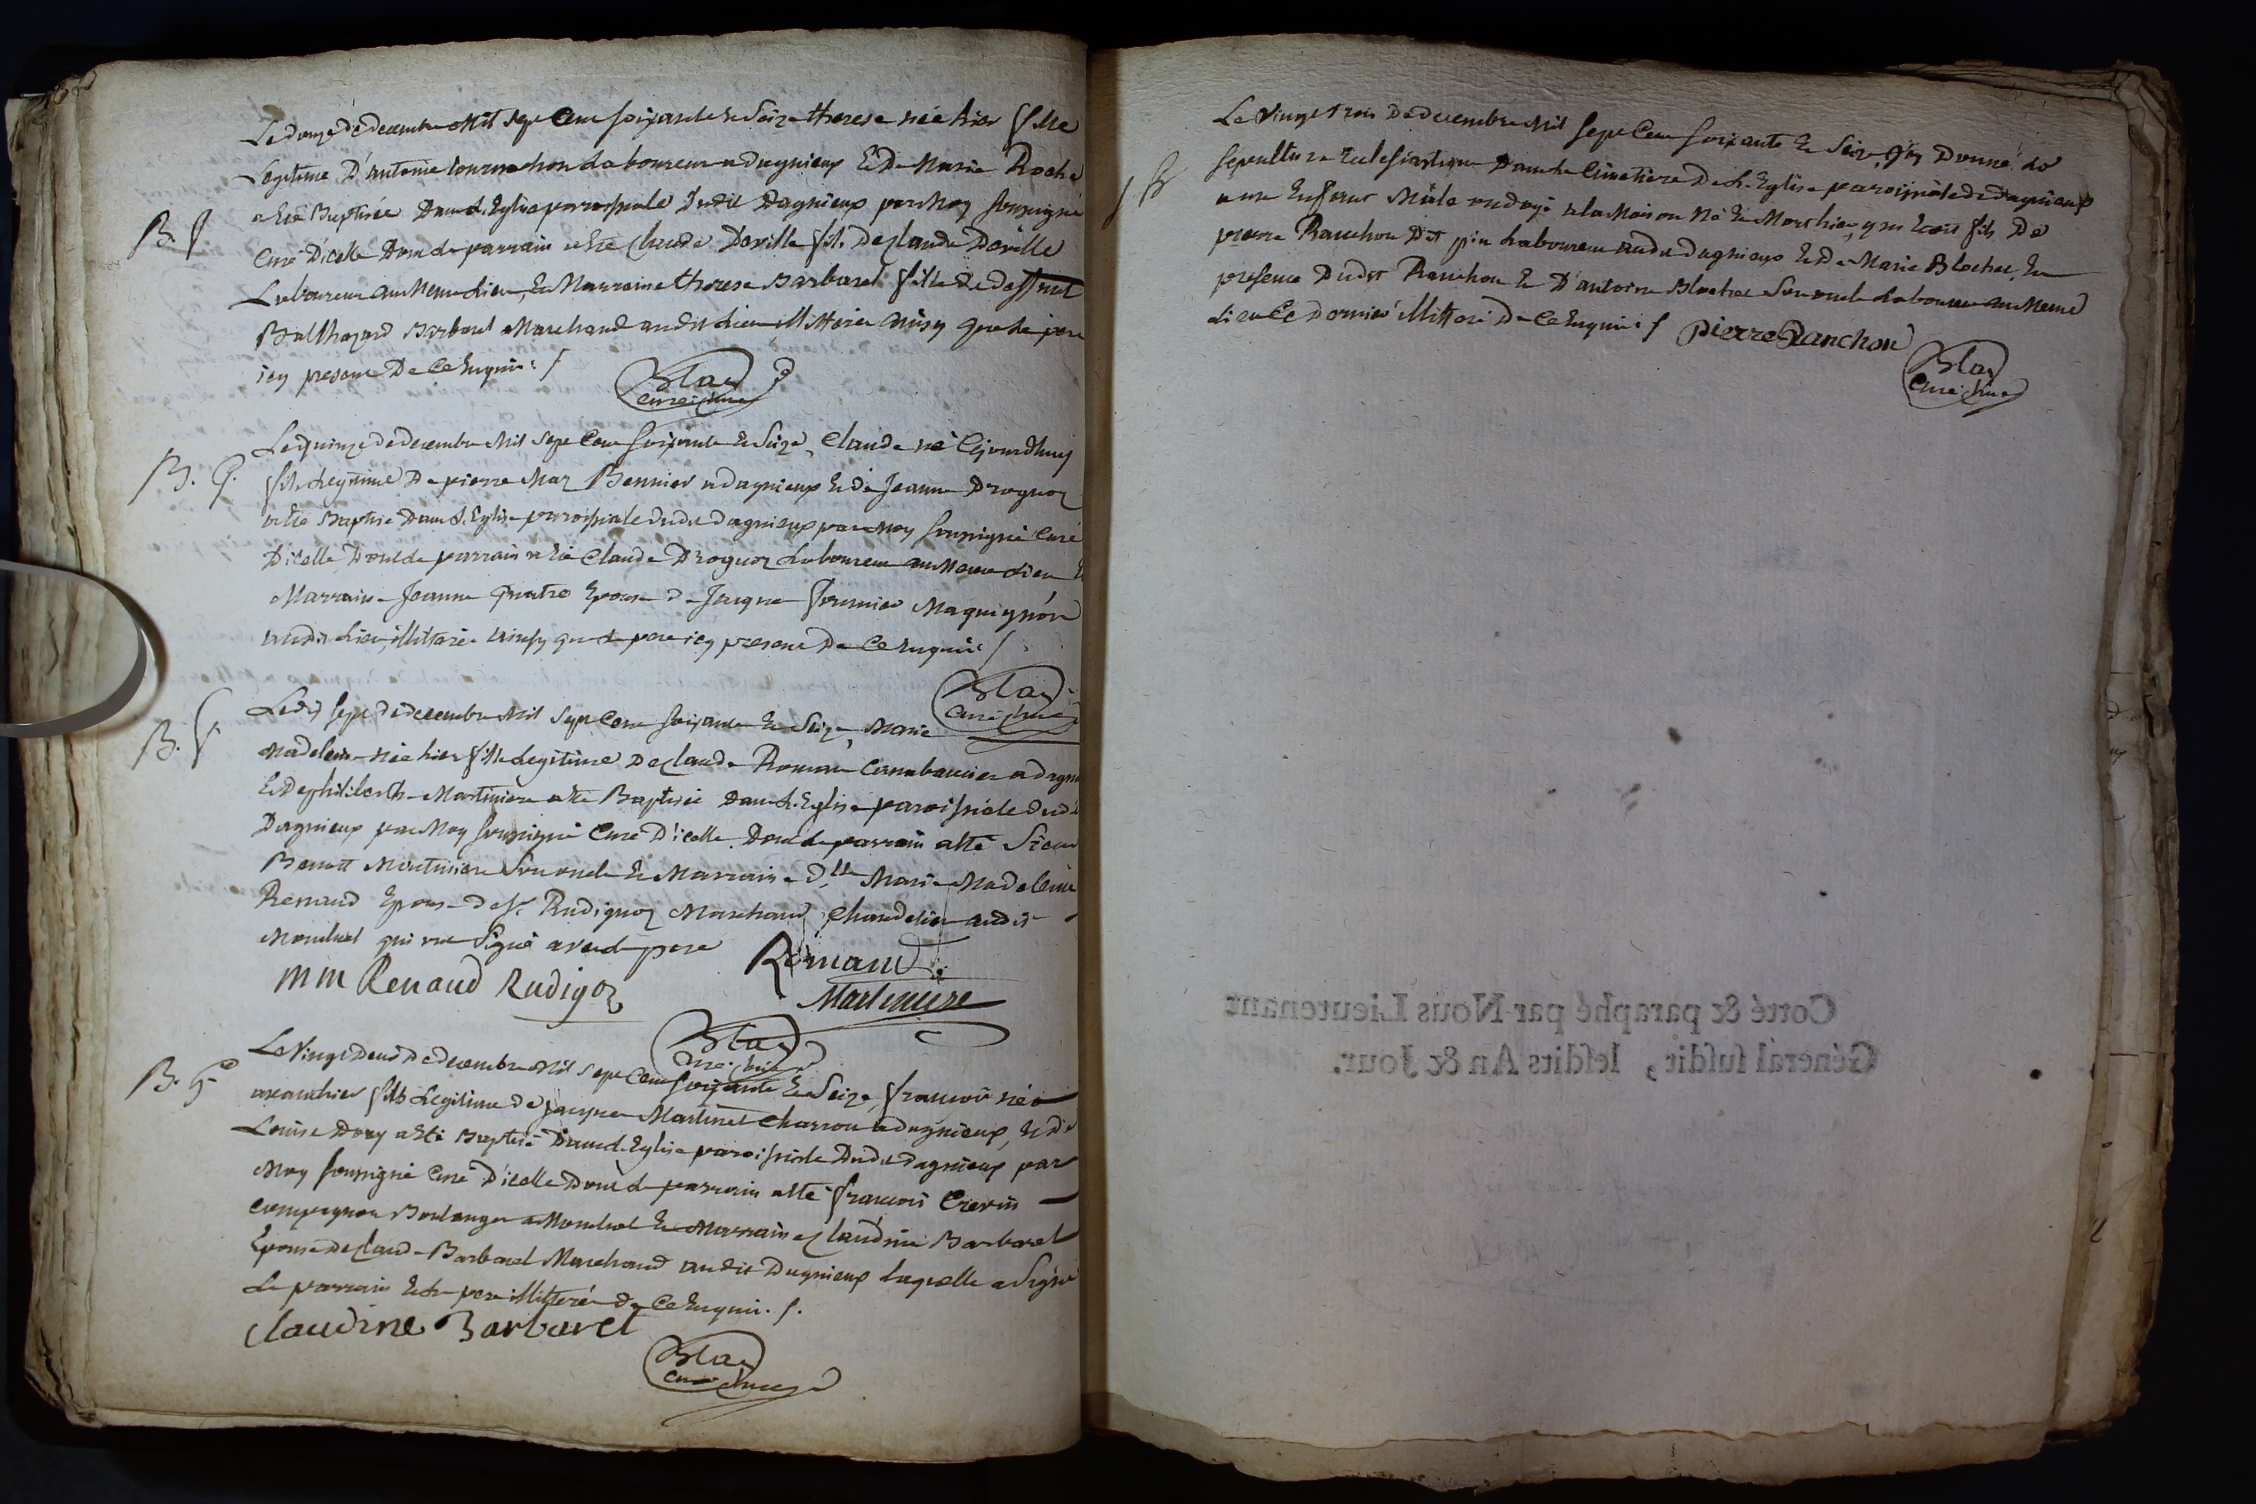 Le douze de decembre Mil sept Cent soixante et Seize therese née hier fille
Legitime D'antoine tournachon Laboureur a dagnieux Et De Marie Roche
B. f a Eté Baptisée Dans L'Eglise paroissiale Dudit Dagnieux par Moy soussigné
Curé D'icelle Dont le parrain a Eté Claude Deville fils De Claude Deville
Laboureur au Meme Lieu, Et Marraine therese Barbaret fille De Deffunt
Balthazard Barbaret Marchand audit Lieu illitterés Ainsy que Le pere
icy present De Ce Enquis
Blas
Curé
Le quinze de decembre Mil Sept Cent soixante Et Seize, Claude né Cejourdhuy
B. G. fils Legitime De pierre Mar Bennier a dagnieux Et de Jeanne Droguoz
a Eté Baptisé Dans L'Eglise paroissiale dudit dagnieux par Moy soussigné Curé
D'icelle Dont le parrain a Eté Claude Droguoz Laboureur au Meme Lieu Et
Marraine Jeanne Quatre Epouse de Jacque fournier Maquignon
audit Lieu, illitterés Ainsy que le pere icy present De Ce Enquis
Blas
Curé
B. f. Le dix Sept de decembre Mil Sept Cent soixante Et Seize, Marie
Madeleine née hier fille Legitime De Claude Romans Cabaretier a dagni
Et De philiberthe Martiniere a Eté Baptisée Dans L'Eglise paroissiale Dudit
Dagnieux par Moy soussigné Curé D'icelle Dont le parrain a Eté Sieur
Benoit Martiniere Son oncle Et Marraine dlle Marie Madeleine
Renaud Epouse de Sr. Rudiguoz Marchand Chandelier audit
Montluel qui ont Signé avec le pere
mm Renaud Rudigoz Romand
Martiniere
Blas
Curé
B. G. Le Vingt Deux De Decembre Mil Sept Cent soixante Et Seize, francois né
avanthier fils Legitime de Jacque Martinet Charron a dagnieux, Et De
Louise Dory a Eté Baptisé Dans L'Eglise paroissiale Dudit dagnieux par
Moy soussigné Curé D'icelle Dont le parrain a Eté francois Crevin
Compagnon Boulanger a Montluel Et Marraine Claudine Barbaret
Epouse De Claude Barbaret Marchand audit Dagnieux Laquelle a Signé
Le parrain Et Le pere illitterés de Ce Enquis.
Claudine Barbaret
Blas
Curé
Le Vingt trois De decembre Mil Sept Cent soixante Et Seize, J'ay Donné La
Sepulture Ecclesiastique Dans Le Cimetiere De L'Eglise paroissiale de dagnieux
a un Enfant Mâle ondoyé a la Maison Né Et Mort hier, fils De
pierre Ranchon Dit Laboureur audit dagnieux Et De Marie Blochet, En
presence Dudit Ranchon Et D'antoine Blochet Son oncle Laboureur au Meme
Lieu Ce Dernier illitteré De Ce Enquis Pierre Ranchon
Blas
Curé
Cotté & paraphé par Nous Lieutenant
Général susdit, lesdits An & Jour.